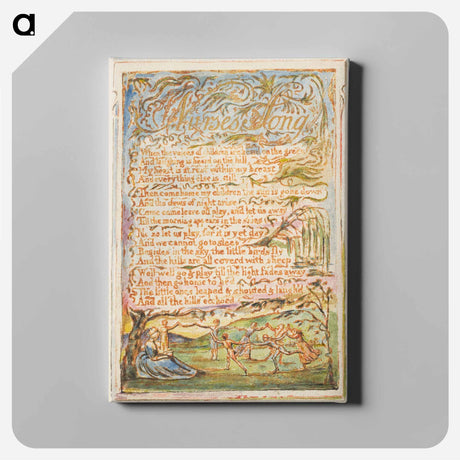 a.
Nurse's Song
When the voices of children are heard on the green
And laughing is heard on the hill
My heart is at rest within my breast
And every thing else is still
Then come home my children the sun is gone down
And the dews of night arise
Come come leave off play, and let us away
Till the morning appears in the skies
No no let us play, for it is yet day
And we cannot go to sleep
Besides in the sky, the little birds fly
And the hills are all coverd with sheep
Well well go & play till the light fades away
And then go home to bed
The little ones leaped & shouted & laugh'd
And all the hills ecchoed